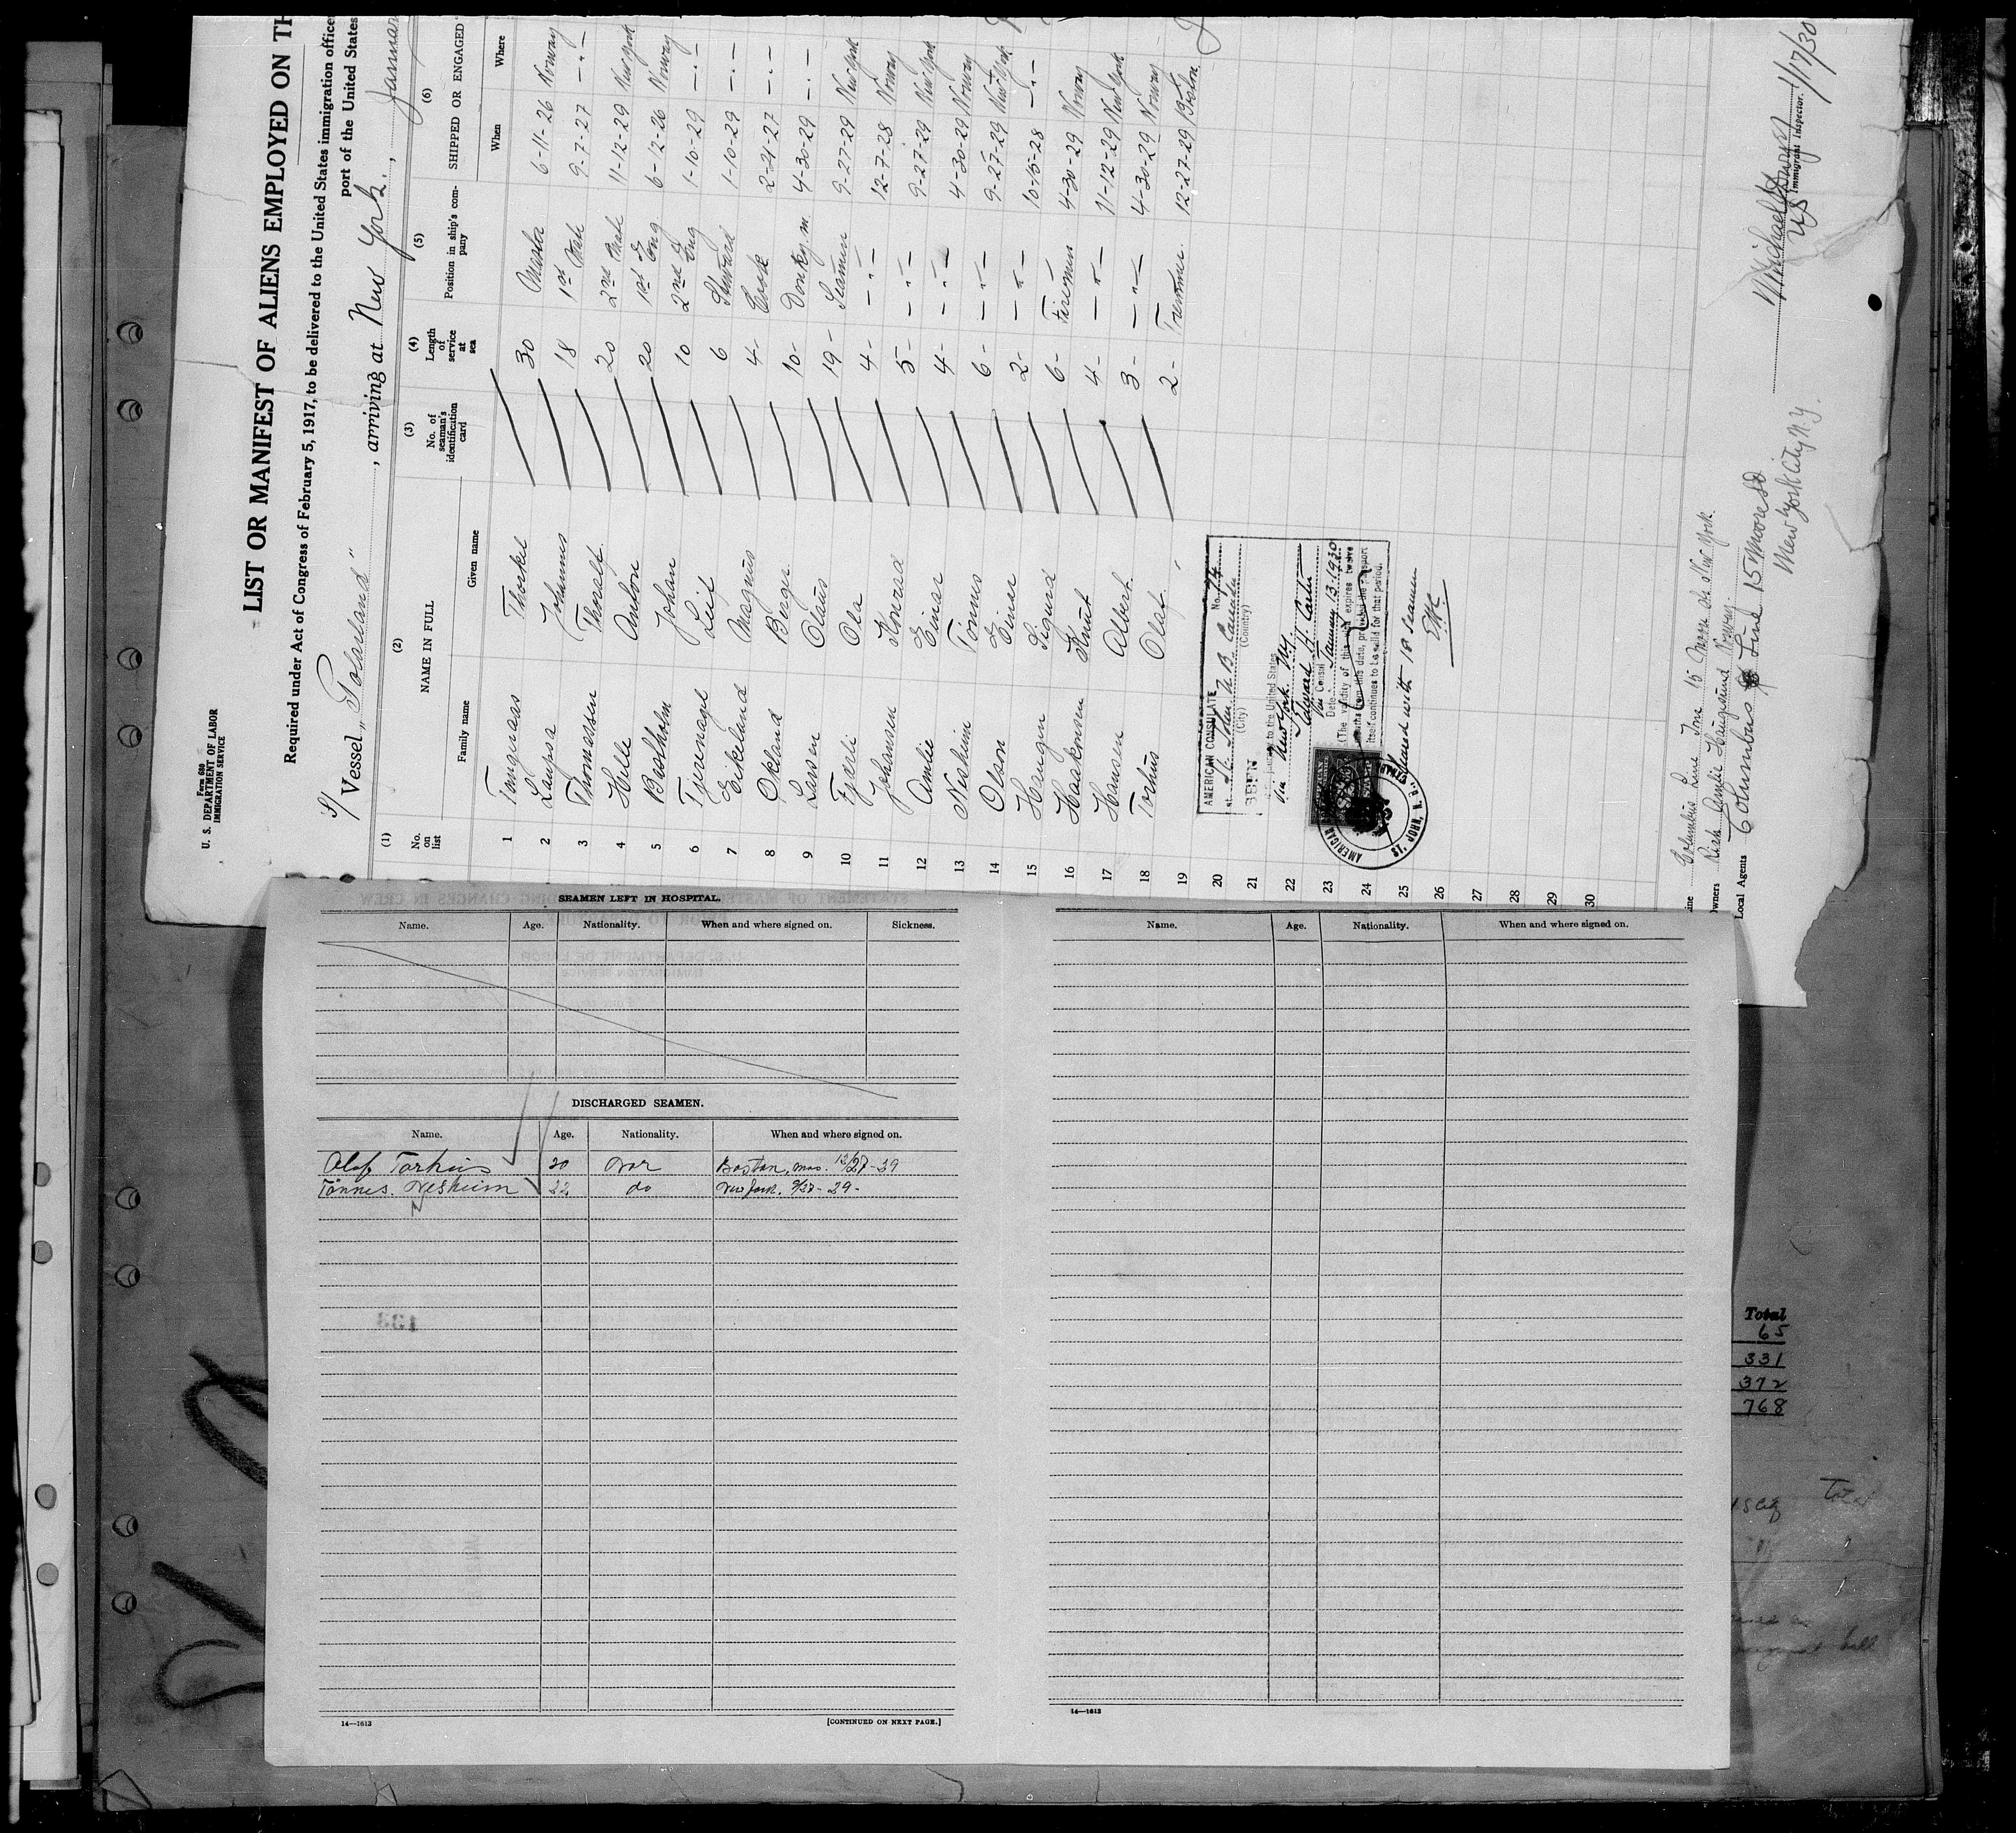 Form 680
U. S. DEPARTMENT OF LABOR
IMMIGRATION SERVICE
LIST OR MANIFEST OF ALIENS EMPLOYED ON TH
Required under Act of Congress of February 5, 1917, to be delivered to the United States immigration officer
port of the United States
S/ Vessel „Polarland", arriving at New York., Januar
(1) (2) (3) (4) (5) (6)
No. on list NAME IN FULL No. of seaman's identification card Length of service at sea Position in ship's company SHIPPED OR ENGAGED
Family name Given name When Where
1 Tungwaas Thorkel 30 Master 6-11-26 Norway
2 Laupsa Johannus 18 1st Mate 9-7-27 -"-
3 Thomassen Thoralf 20 2nd Mate 11-12-29 New York
4 Hille Anton 20 1st Eng 6-12-26 Norway
5 Bashholm Johan 10 2nd Eng 1-10-29 -"-
6 Tjernagel Leif 6 Steward 1-10-29 -"-
7 Eikeland Magnus 4- Cook 2-21-27 -"-
8 Okland Birger 10- Donkey.m. 4-30-29 -"-
9 Larsen Olaus 19- Seamen 9-27-29 New York
10 Fjæreli Ola 4- -"- 12-7-28 Norway
11 Johansen Konrad 5- -"- 9-27-29 New York
12 Amlie Einar 4- -"- 4-30-29 Norway
13 Nesheim Tönnes 6- -"- 9-27-29 New York
14 Olson Einar 2- -"- 10-15-28 -"-
15 Haugen Sigurd 6- Firemen 4-30-29 Norway
16 Haakonsen Knut 4- -"- 11-12-29 New York
17 Hansen Albert 3- -"- 4-30-29 Norway
18 Torhus Olaf. 2- Trimmer. 12-27-29 Boston.
19
20
21
22
23
24
25
26
27
28
29
30
AMERICAN CONSULATE No. 74
at St. John N.B. Canada
(City) (Country)
SEEN
to the United States
Via New York N.Y.
Edward H. Carter
Vice Consul
Date January 13.1930
(The validity of this visa expires twelve
months from this date, provided the passport
itself continues to be valid for that period.
AMERICAN
ST. JOHN, N. B.
with 18 seamen
ine Columbus Line Inc 15 Moore St. New York.
wners Rich Amlie Haugesund Norway.
Local Agents Columbus Line 15 Moore St
New York City N.Y.
US Immigrant Inspector. 1/17/30
SEAMEN LEFT IN HOSPITAL.
Name. Age. Nationality. When and where signed on. Sickness.
DISCHARGED SEAMEN.
Name. Age. Nationality. When and where signed on.
Olaf Torhus 20 Nor Boston, Mas. 12/27-29
Tönnes. Nesheim 22 do New York. 9/27-29-
14—1613
[CONTINUED ON NEXT PAGE.]
Name. Age. Nationality. When and where signed on.
14—1613
Total
65
331
372
768
Total